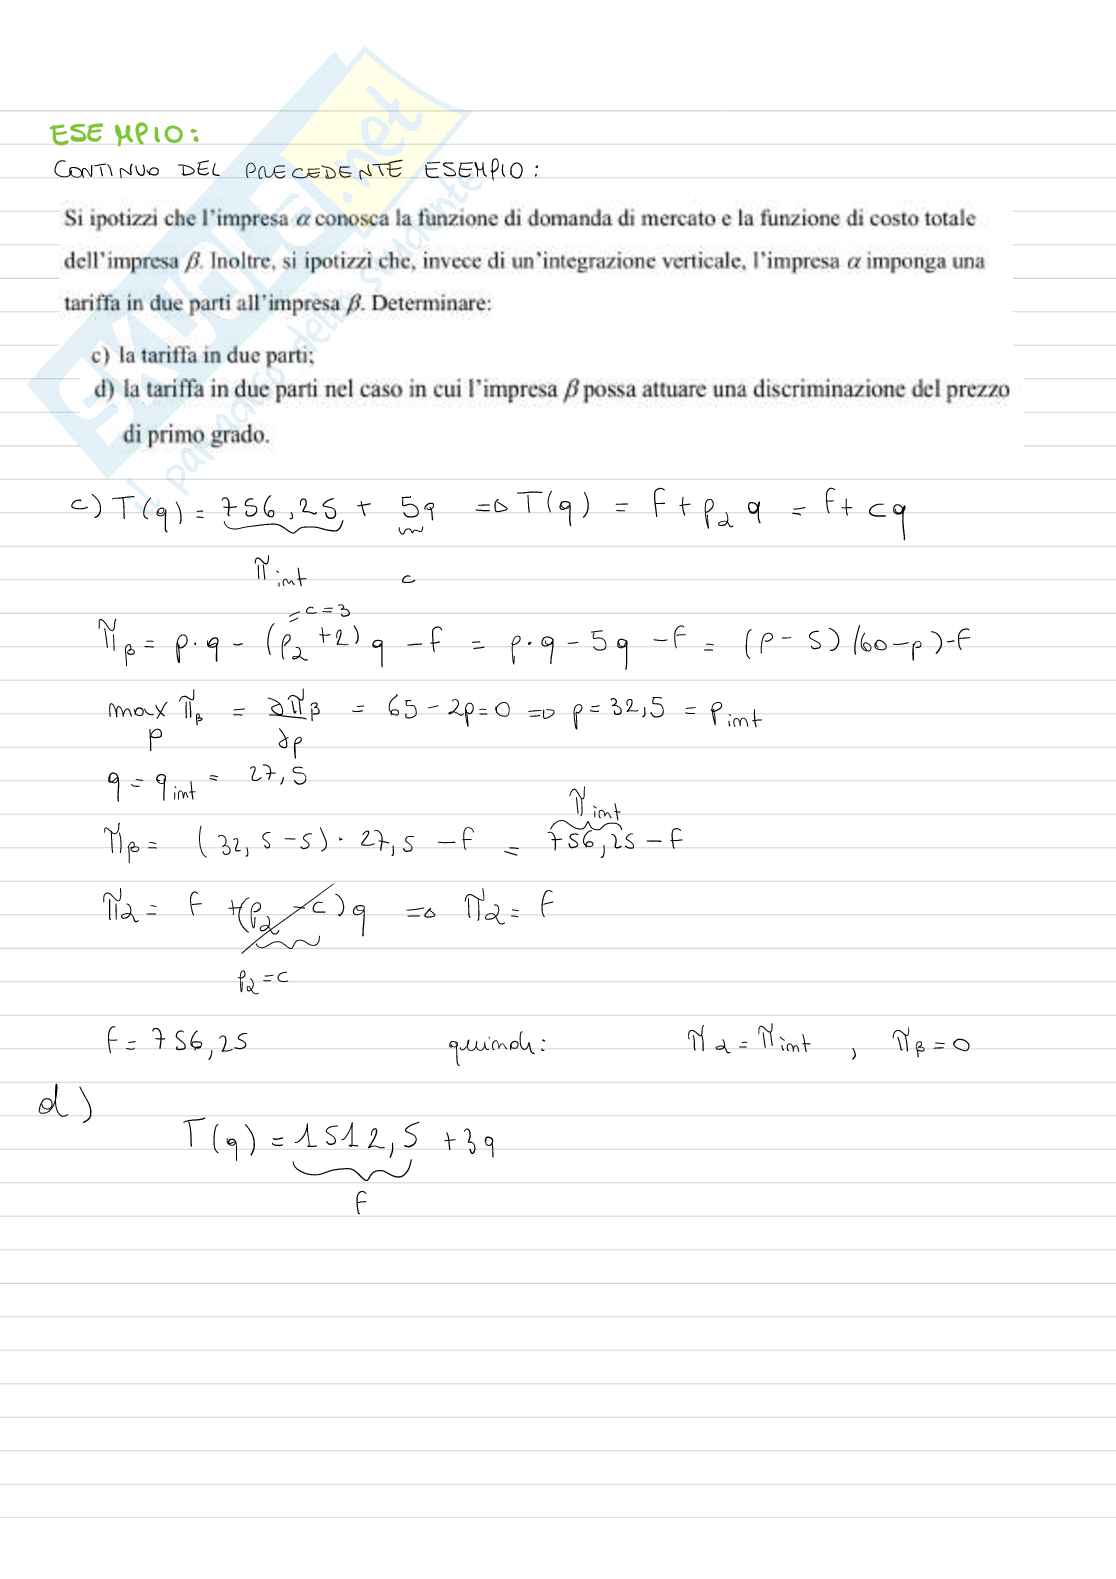 ESEMPIO:
CONTINUO DEL PRECEDENTE ESEMPIO:
Si ipotizzi che l'impresa α conosca la funzione di domanda di mercato e la funzione di costo totale
dell'impresa β. Inoltre, si ipotizzi che, invece di un'integrazione verticale, l'impresa α imponga una
tariffa in due parti all'impresa β. Determinare:
c) la tariffa in due parti;
d) la tariffa in due parti nel caso in cui l'impresa β possa attuare una discriminazione del prezzo
di primo grado.
c) T(q) = 756,25 + 5q => T(q) = f + pα q = f + cq
π int c
= c = 3
πβ = p·q - (pα + 2) q - f = p·q - 5q - f = (p - 5) (60-p) - f
max πβ = ∂πβ = 65 - 2p = 0 => p = 32,5 = p int
p ∂p
q = q int = 27,5
π int
πβ = (32,5 - 5) · 27,5 - f = 756,25 - f
πα = f + (pα - c) q => πα = f
pα = c
f = 756,25 quindi: πα = π int , πβ = 0
d)
T(q) = 1512,5 + 3q
f